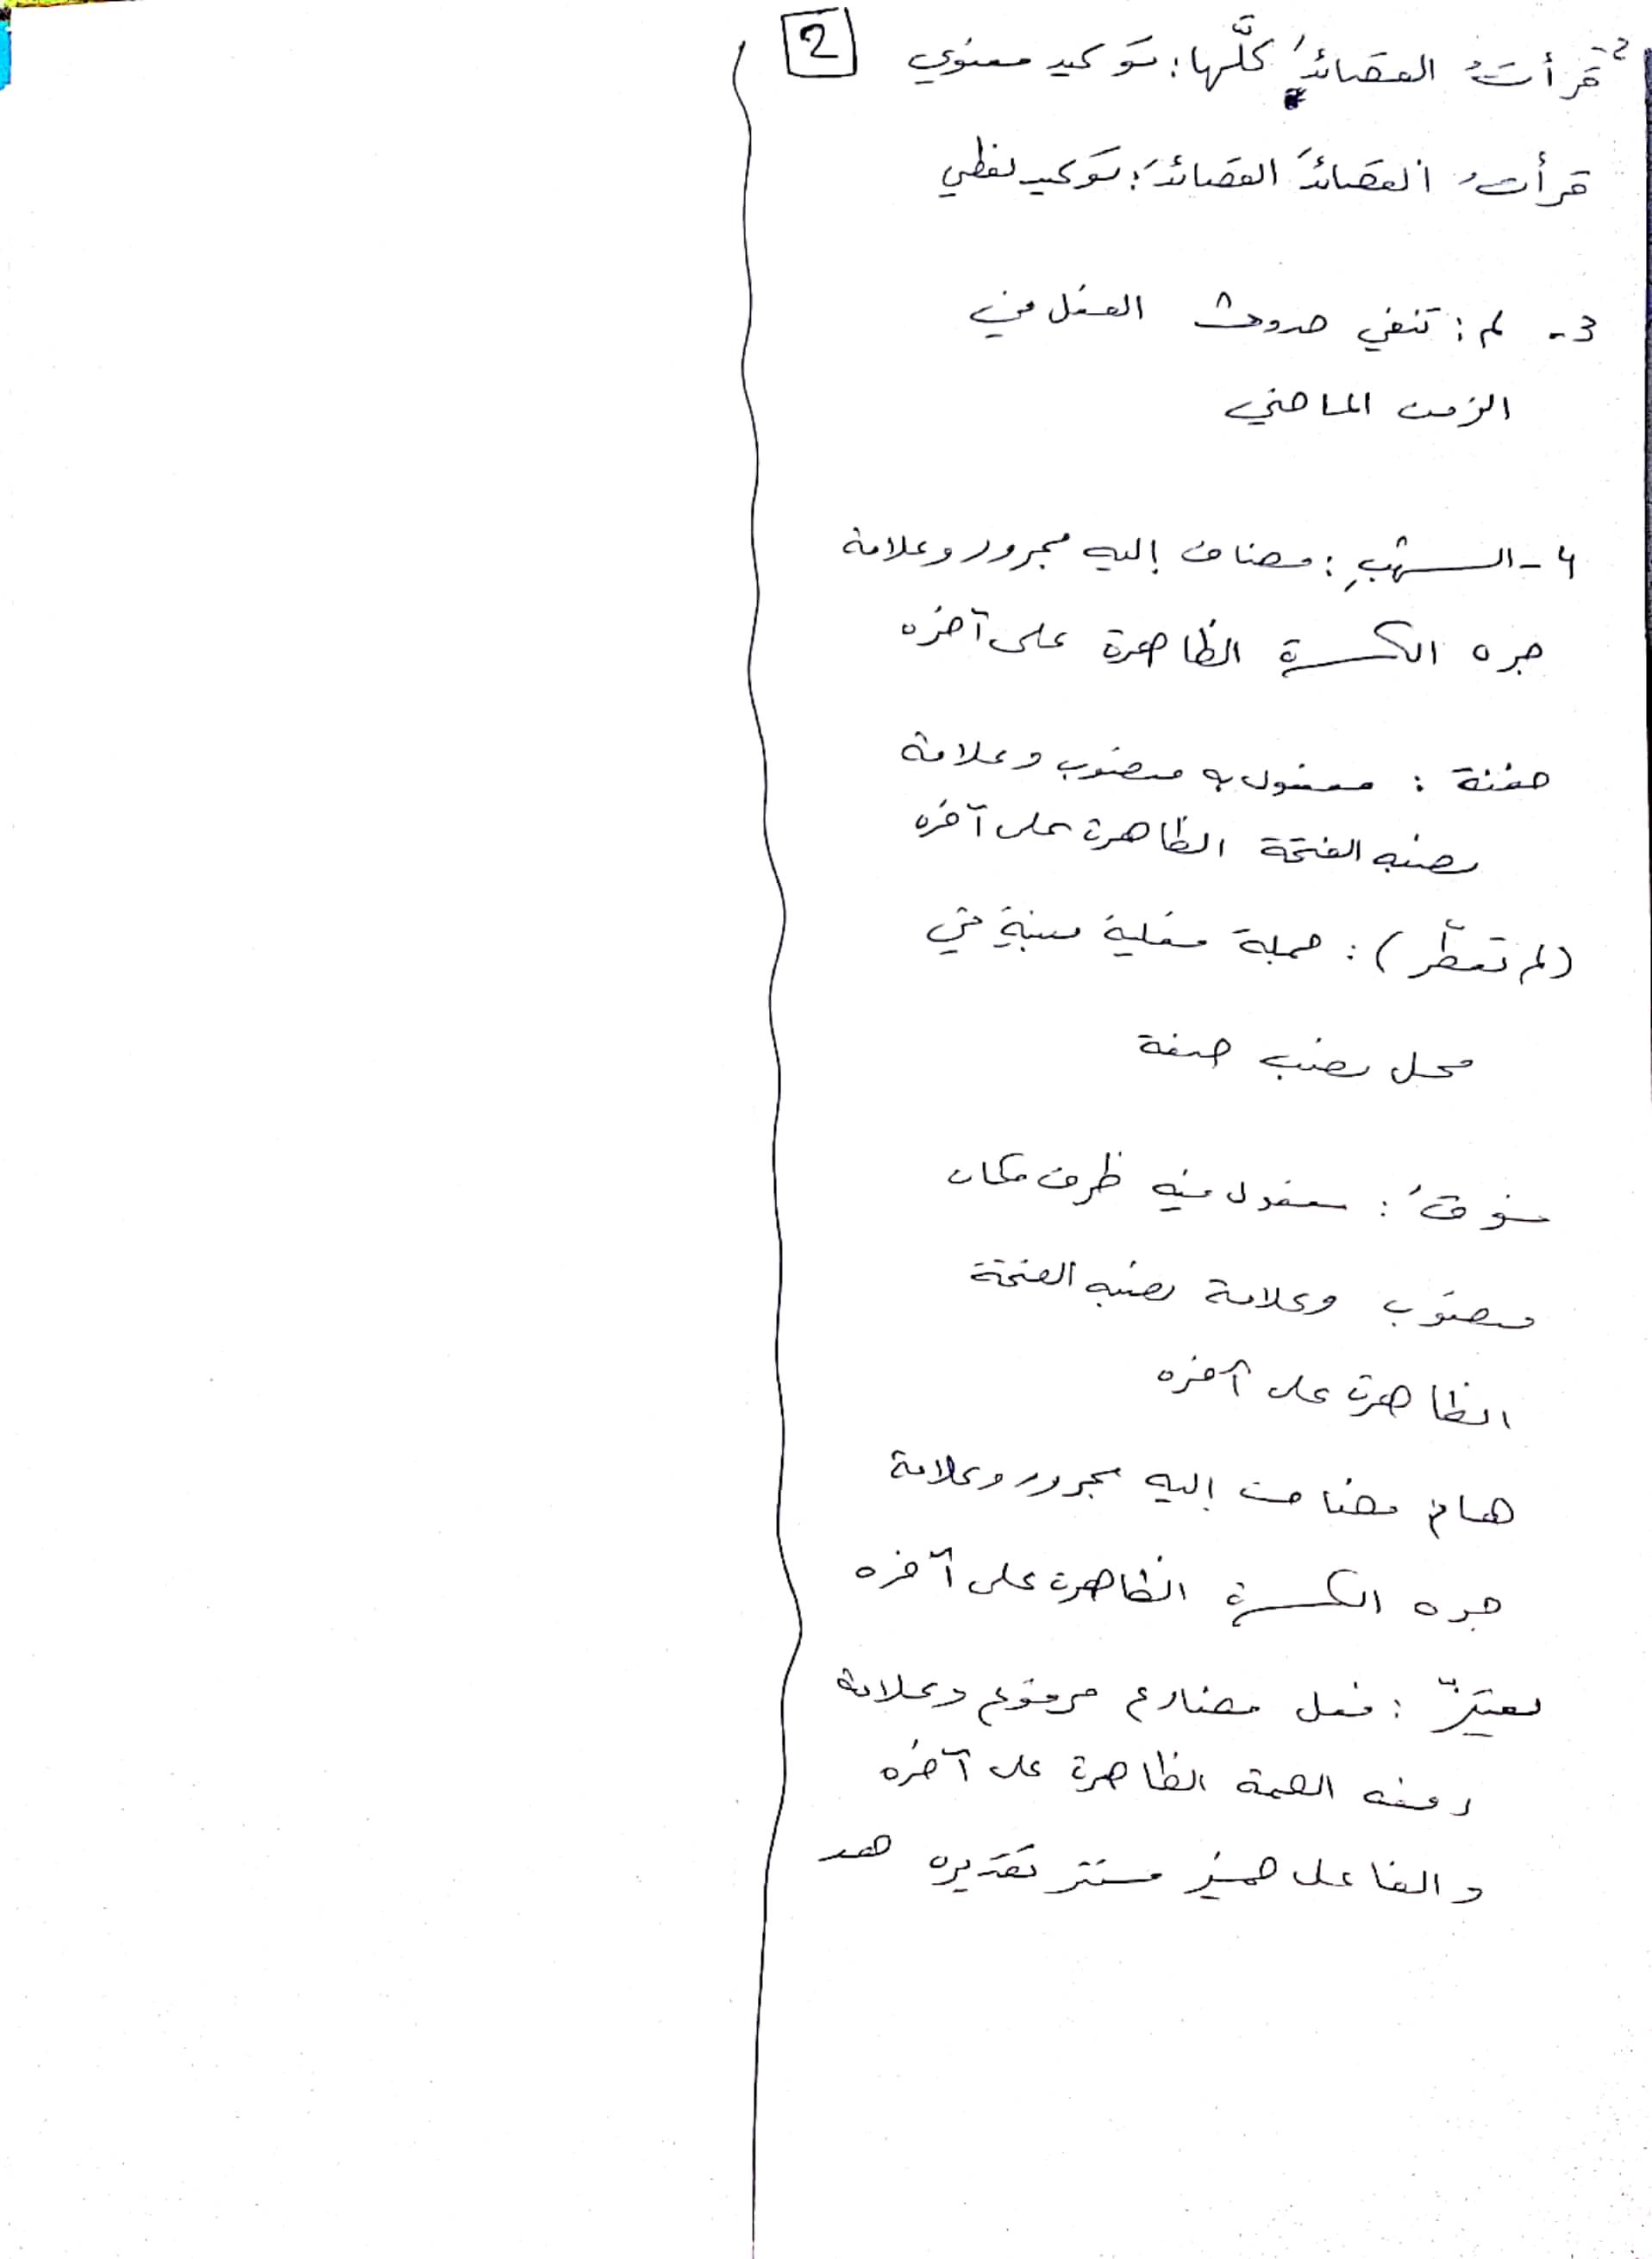 2
2- قرأتُ القصائدَ كلَّها: توكيد معنوي
قرأتُ القصائدَ القصائدَ: توكيد لفظي
3- لم: تنفي حدوث الفعل في
الزمن الماضي
4- الشهبِ: مضاف إليه مجرور وعلامة
جره الكسرة الظاهرة على آخره
حفنة: مفعول به منصوب وعلامة
نصبه الفتحة الظاهرة على آخره
(لم تمطّر): جملة فعلية مبنية في
محل نصب صفة
فوقَ: مفعول فيه ظرف مكان
منصوب وعلامة نصبه الفتحة
الظاهرة على آخره
هامِ مضاف إليه مجرور وعلامة
جره الكسرة الظاهرة على آخره
يعتزّ: فعل مضارع مرفوع وعلامة
رفعه الضمة الظاهرة على آخره
والفاعل ضمير مستتر تقديره هو